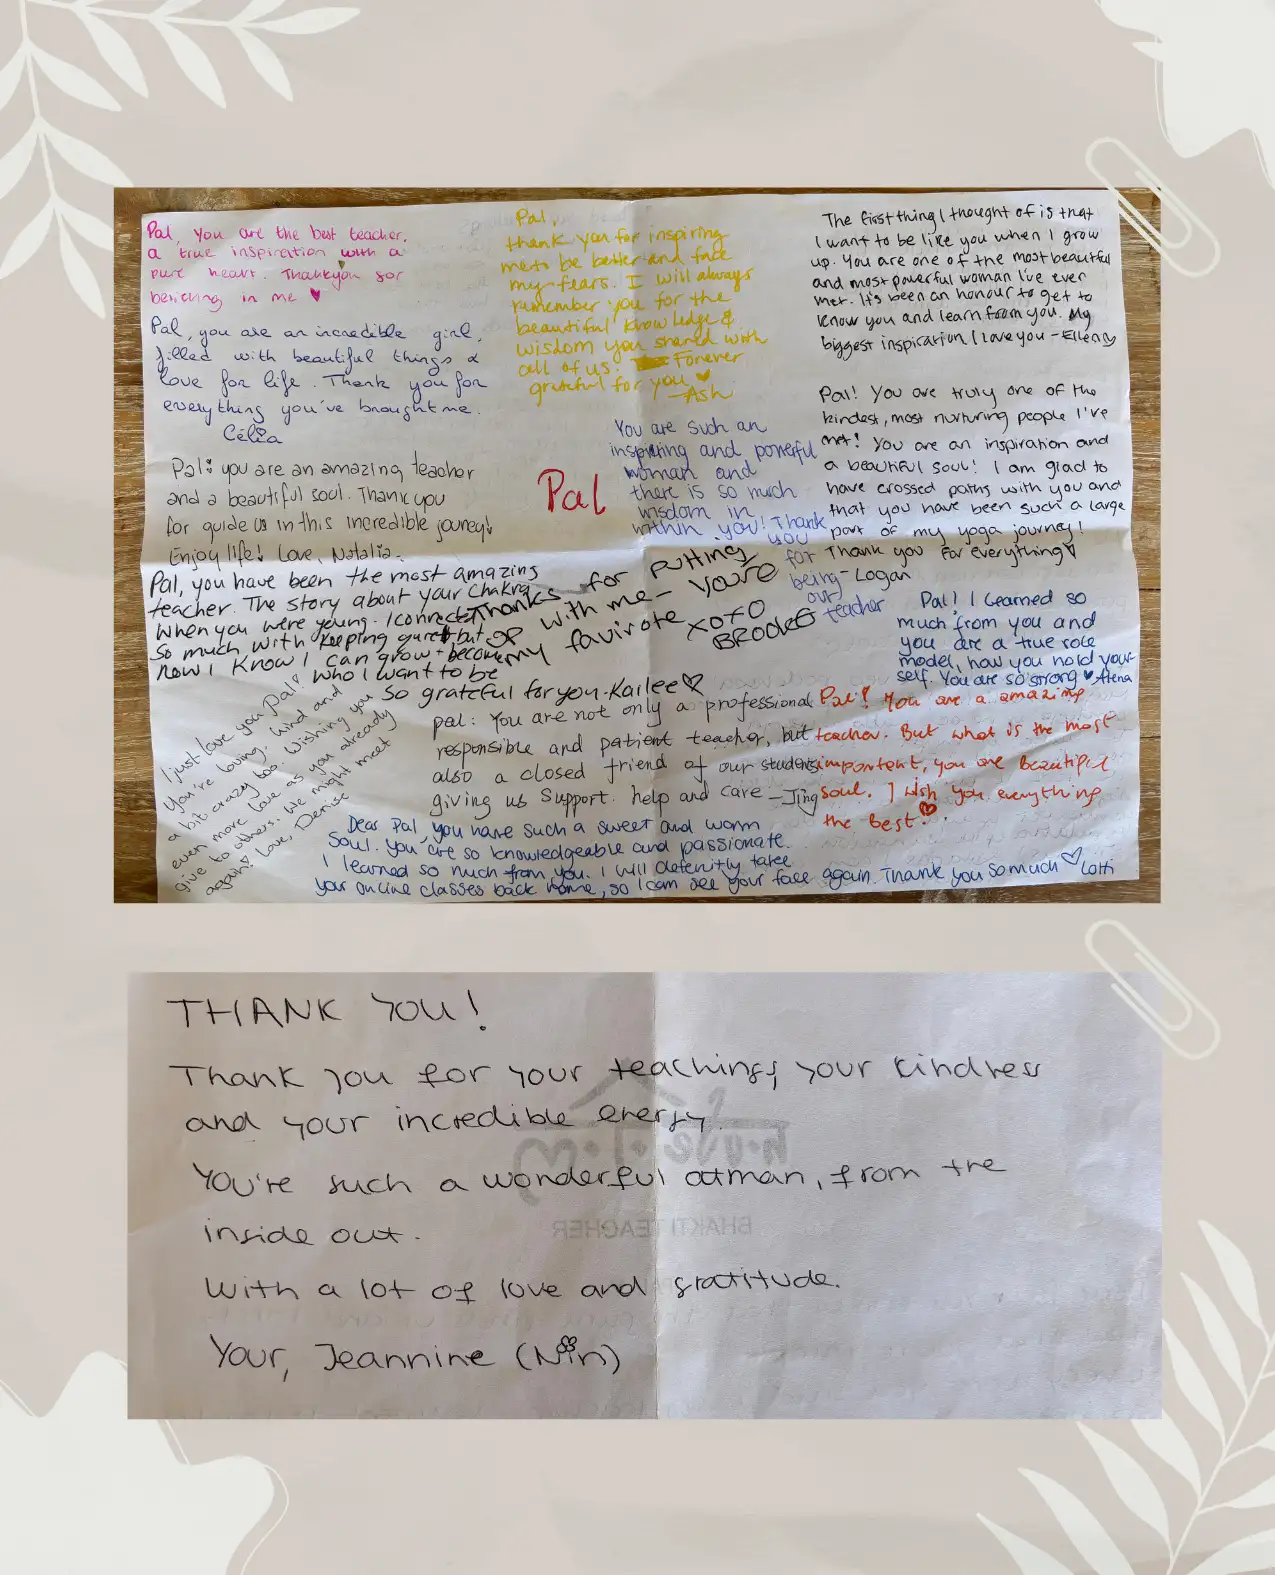 Pal, you are the best teacher,
a true inspiration with a
pure heart. Thankyou for
believing in me ♥
Pal, you are an incredible girl,
filled with beautiful things &
love for life. Thank you for
everything you've brought me.
Célia
Pal! you are an amazing teacher
and a beautiful soul. Thank you
for guide us in this incredible journey!
Enjoy life! Love, Natalia.
Pal, you have been the most amazing
teacher. The story about your chakra
when you were young. I connected
so much with keeping quiet but
now I know I can grow + become
who I want to be
So grateful for you - Kailee ♡
Pal,
thank you for inspiring
me to be better and face
my fears. I will always
remember you for the
beautiful knowledge &
wisdom you shared with
all of us. Forever
grateful for you ♥
- Ash
The first thing I thought of is that
I want to be like you when I grow
up. You are one of the most beautiful
and most powerful woman I've ever
met. It's been an honour to get to
know you and learn from you. My
biggest inspiration I love you - Ellen
Pal! You are truly one of the
kindest, most nurturing people I've
met! You are an inspiration and
a beautiful soul! I am glad to
have crossed paths with you and
that you have been such a large
part of my yoga journey!
Thank you for everything ♡
- Logan
You are such an
inspiring and powerful
woman and
there is so much
wisdom in
within you! Thank
you
for
being
our
teacher
Pal
Thanks for putting
up with me - You're
my favirote xoxo
BROOKE
Pal! I learned so
much from you and
you are a true role
model, how you hold your-
self. You are so strong ♥ Alena
I just love you Pal!
You're loving, kind and
a bit crazy too. Wishing you
even more love as you already
give to others. We might meet
again ♡ Love, Denise
pal: You are not only a professional
responsible and patient teacher, but
also a closed friend of our students
giving us support. help and care - Jing
Pal! You are a amazing
teacher. But what is the most
important, you are beautiful
soul. I wish you everything
the best ♡.
Dear Pal, you have such a sweet and worm
soul. You are so knowledgeable and passionate.
I learned so much from you. I will defenitly take
your online classes back home, so I can see your face again. Thank you so much ♡ Lotti
THANK YOU!
Thank you for your teachings, your kindness
and your incredible energy.
You're such a wonderful atman, from the
inside out.
With a lot of love and gratitude.
Your, Jeannine (Nin)
BHAKTI TEACHER